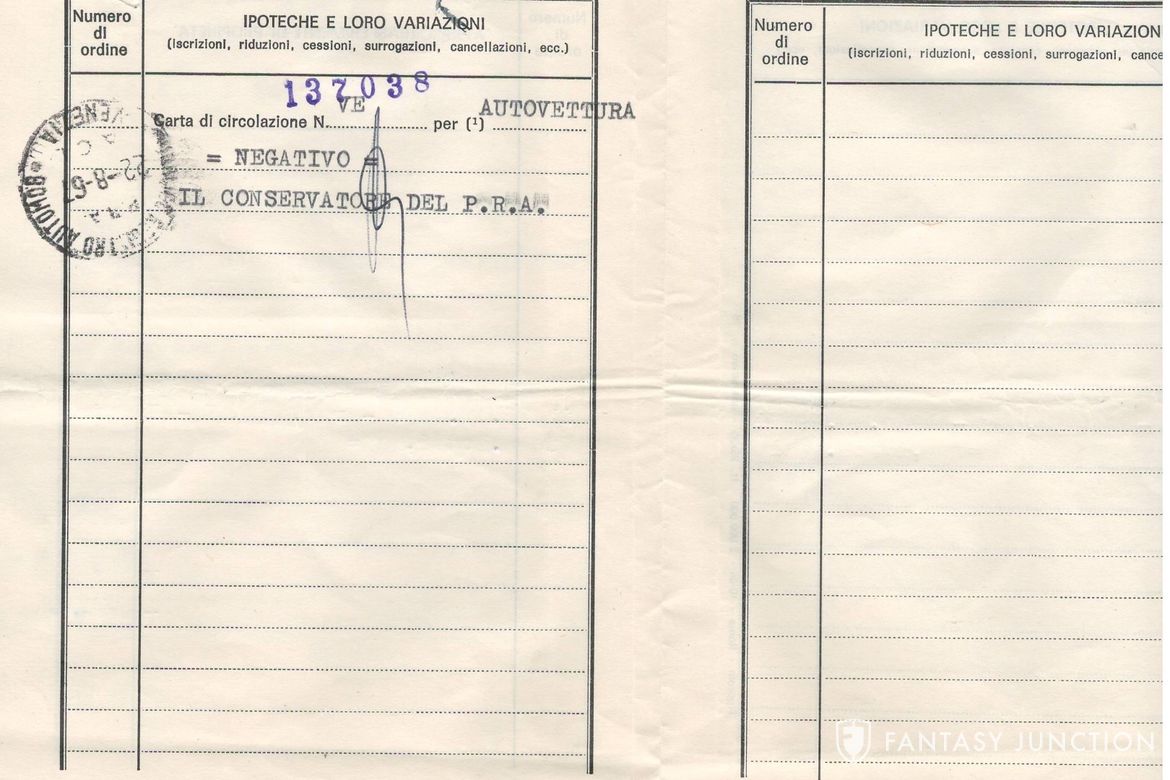 Numero
di
ordine
IPOTECHE E LORO VARIAZIONI
(iscrizioni, riduzioni, cessioni, surrogazioni, cancellazioni, ecc.)
137038
VE AUTOVETTURA
Carta di circolazione N. per (¹)
= NEGATIVO =
IL CONSERVATORE DEL P.R.A.
VENEZIA
22-8-67
AUTOMOB
Numero
di
ordine
IPOTECHE E LORO VARIAZION
(iscrizioni, riduzioni, cessioni, surrogazioni, cance
FANTASY JUNCTION